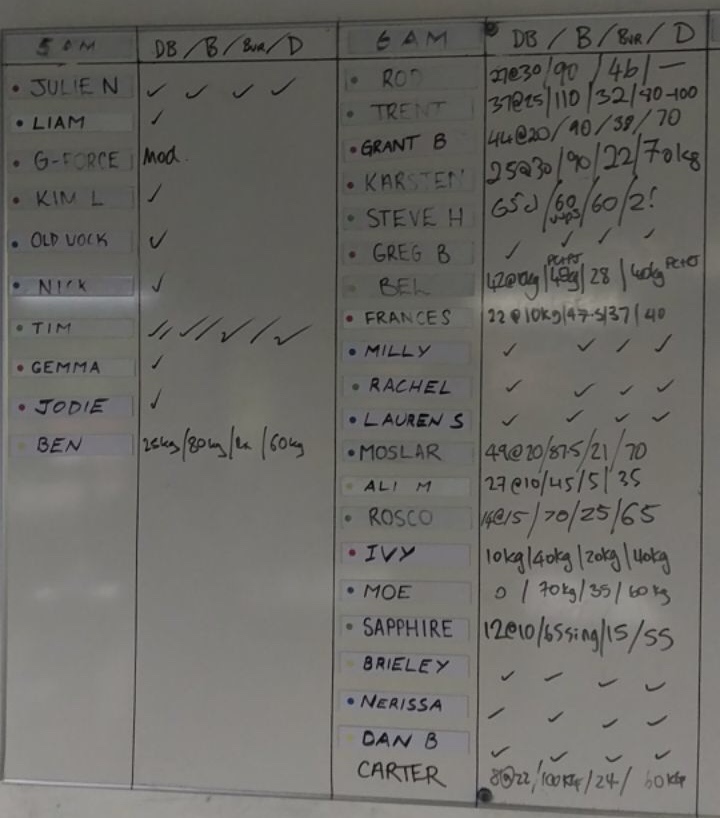 5 AM DB / B / BUR / D
JULIE N ✓ ✓ ✓ ✓
LIAM ✓
G-FORCE Mod.
KIM L ✓
OLD UOCK ✓
NICK ✓
TIM ✓✓/✓/✓/✓
GEMMA ✓
JODIE ✓
BEN 25kg/80kg/ /60kg
6 AM DB / B / BUR / D
ROD 27@30/90/46/—
TRENT 37@25/110/32/90-100
GRANT B 44@20/90/38/70
KARSTEN 25@30/90/22/70kg
STEVE H /60/60/2!
GREG B ✓ ✓ ✓ ✓
BEL 28
FRANCES 22@10kg/47.5/37/40
MILLY ✓ ✓ ✓ ✓
RACHEL ✓ ✓ ✓ ✓
LAUREN S ✓ ✓ ✓ ✓
MOSLAR 49@20/87.5/21/70
ALI M 27@10/45/5/35
ROSCO 14@15/70/25/65
IVY 10kg/40kg/20kg/40kg
MOE 0/70kg/35/60kg
SAPPHIRE 12@10/65sing/15/55
BRIELEY ✓ ✓ ✓ ✓
NERISSA ✓ ✓ ✓ ✓
DAN B ✓ ✓ ✓ ✓
CARTER 8@22/100kg/24/60kg